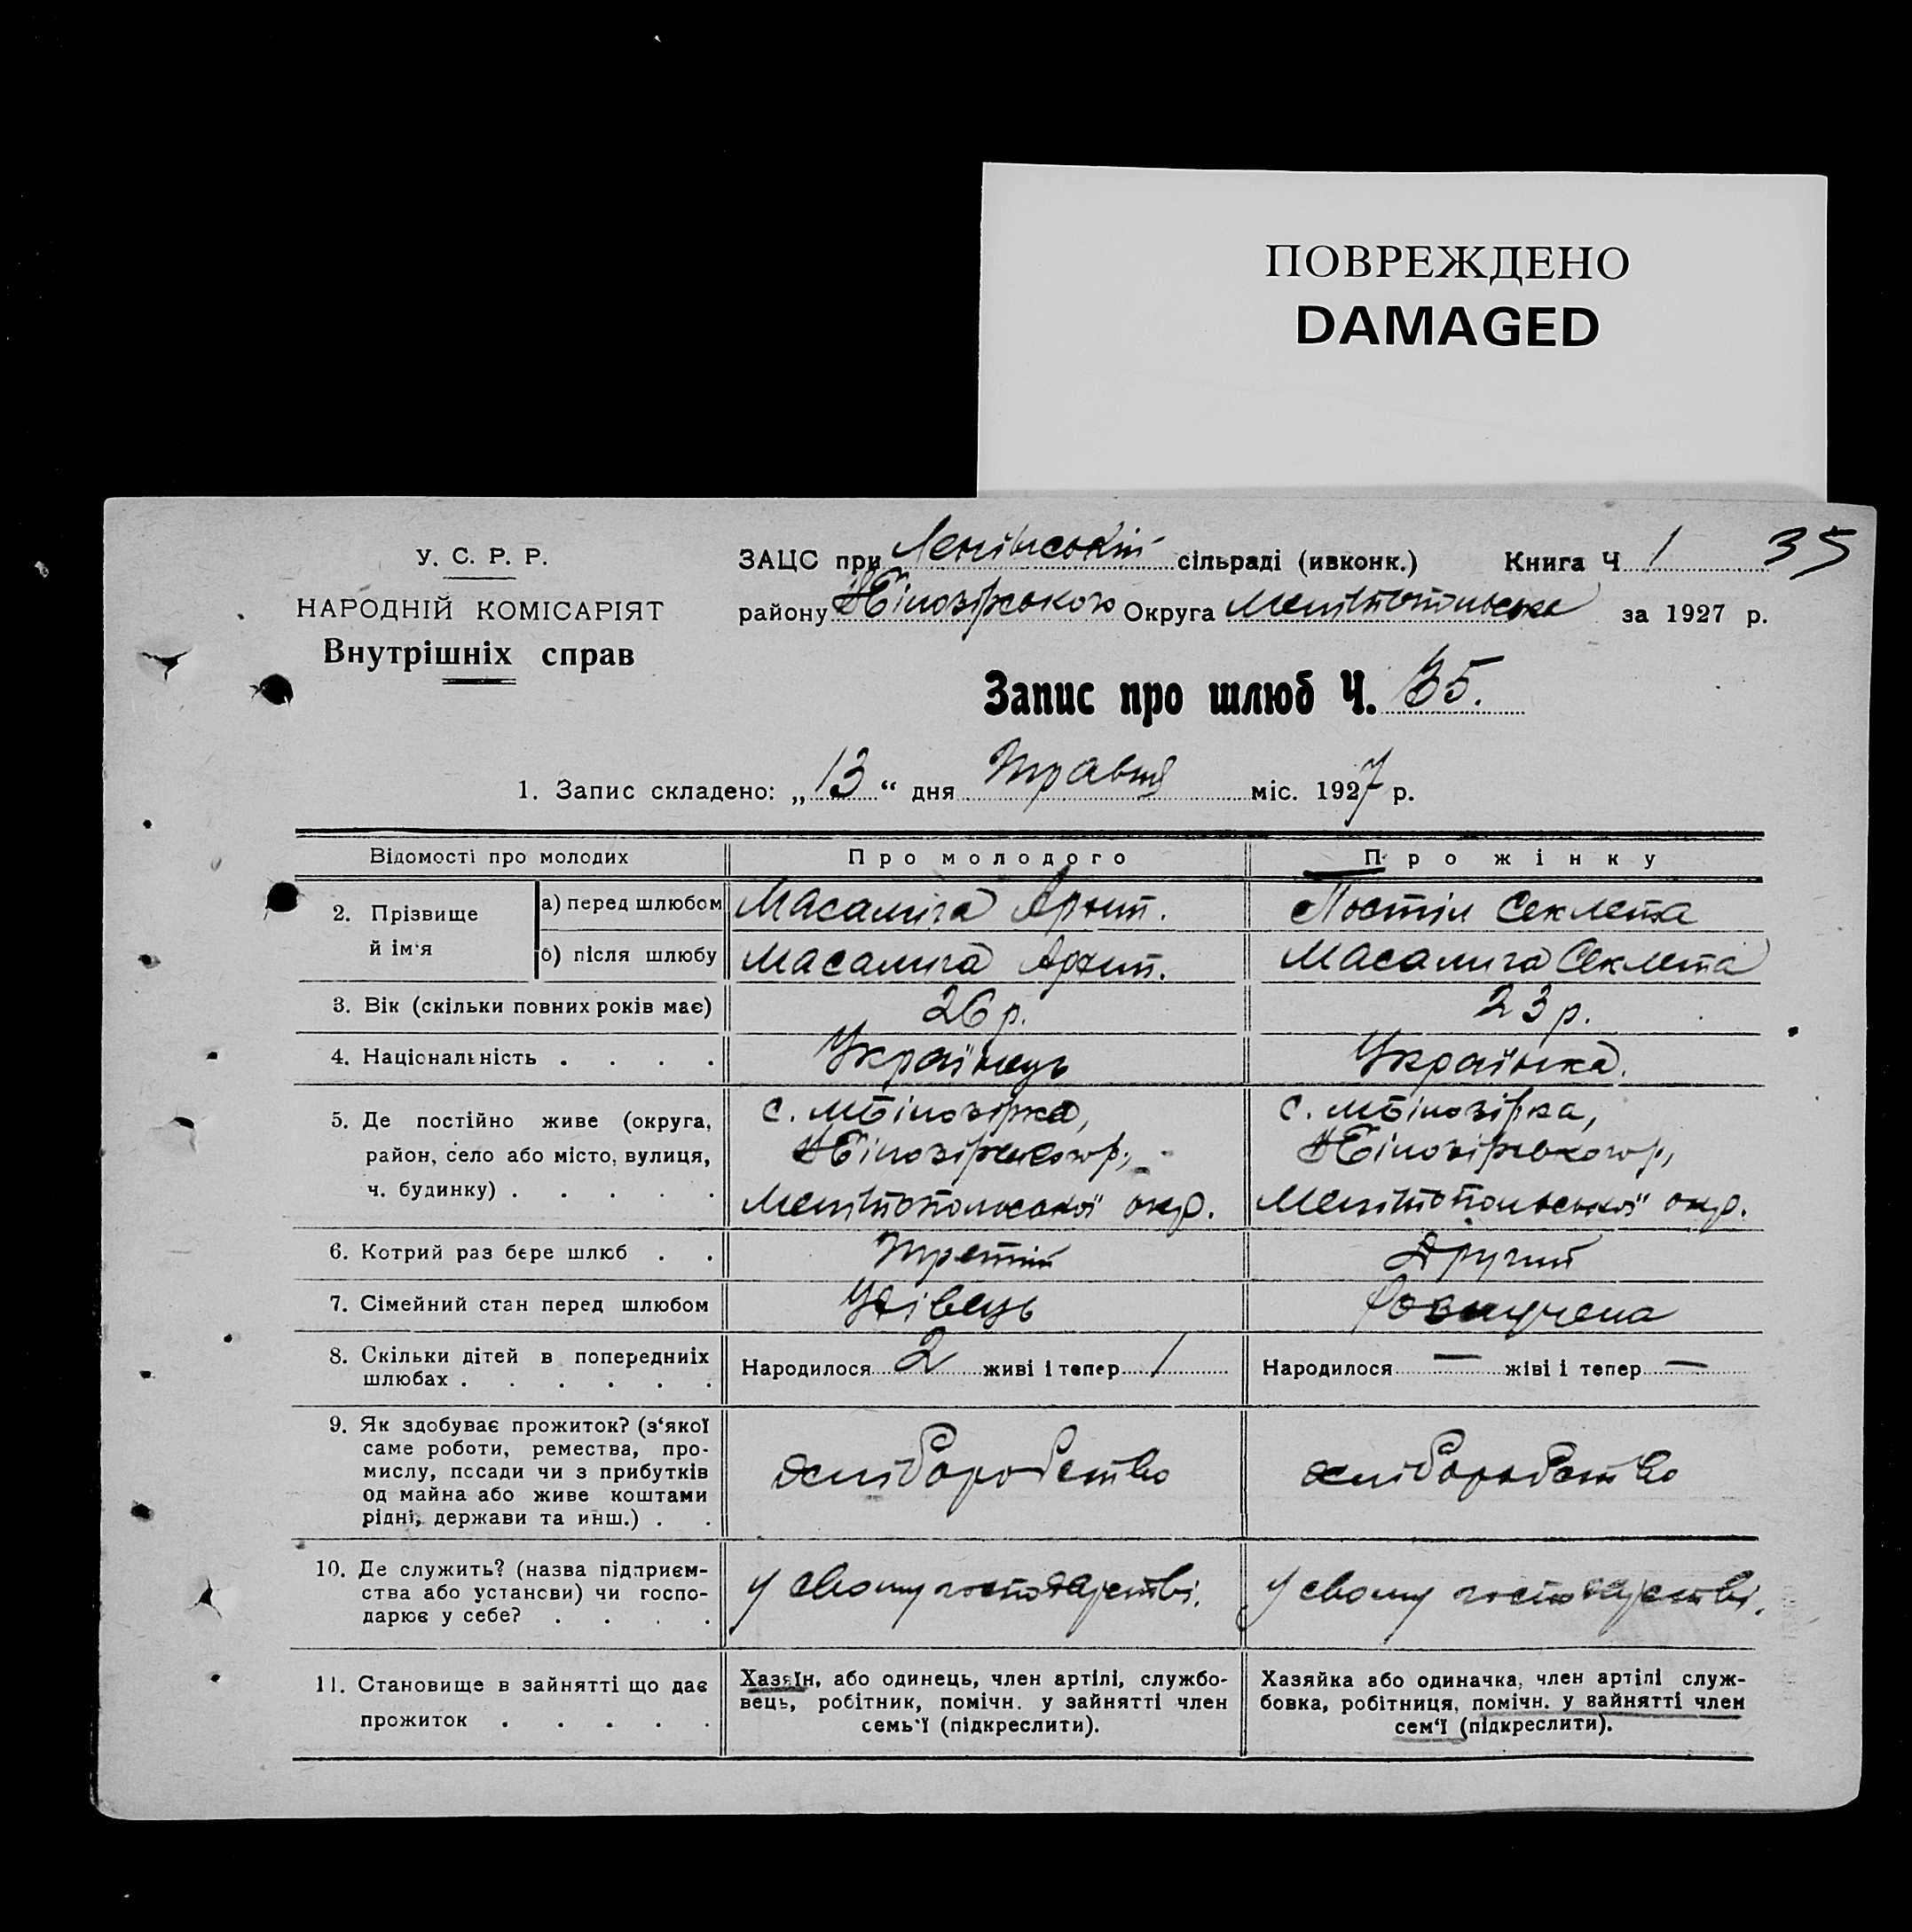 ПОВРЕЖДЕНО
DAMAGED
У. С. Р. Р.
НАРОДНІЙ КОМІСАРІЯТ
Внутрішніх справ
ЗАЦС при Ленінській сільраді (ивконк.) Книга Ч 1 35
району Білозірського Округа Мелітопольська за 1927 р.
Запис про шлюб Ч. 35.
1. Запис складено: „13“ дня Травня міс. 1927 р.
Відомості про молодих Про молодого Про жінку
2. Прізвище й ім'я
а) перед шлюбом Масалига Архип. Постіл Секлета
б) після шлюбу Масалига Архип. Масалига Секлета
3. Вік (скільки повних років має) 26 р. 23 р.
4. Національність . . . . Українець Українка.
5. Де постійно живе (округа, с. МБілозірка, с. МБілозірка,
район, село або місто, вулиця, Білозірського р, Білозірського р,
ч. будинку) . . . . . Мелітопольської окр. Мелітопольської окр.
6. Котрий раз бере шлюб . . Третій Другий
7. Сімейний стан перед шлюбом Удівець Розлучена
8. Скільки дітей в попередниіх
шлюбах . . . . . . Народилося 2 живі і тепер 1 Народилося — жіві і тепер —
9. Як здобуває прожиток? (з'якої
саме роботи, ремества, про-
мислу, посади чи з прибутків хліборобство хліборобство
од майна або живе коштами
рідні, держави та инш.) . .
10. Де служить? (назва підприєм-
ства або установи) чи госпо- у свому господарстві. у свому господарстві.
дарює у себе? . . . .
11. Становище в зайнятті що дає
прожиток . . . . .
Хазяїн, або одинець, член артілі, службо-
вець, робітник, помічн. у зайнятті член
семь'ї (підкреслити).
Хазяйка або одиначка, член артілі служ-
бовка, робітниця, помічн. у зайнятті член
сем'ї (підкреслити).